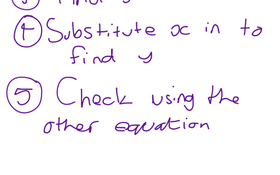 ④ Substitute x in to
find y
⑤ Check using the
other equation